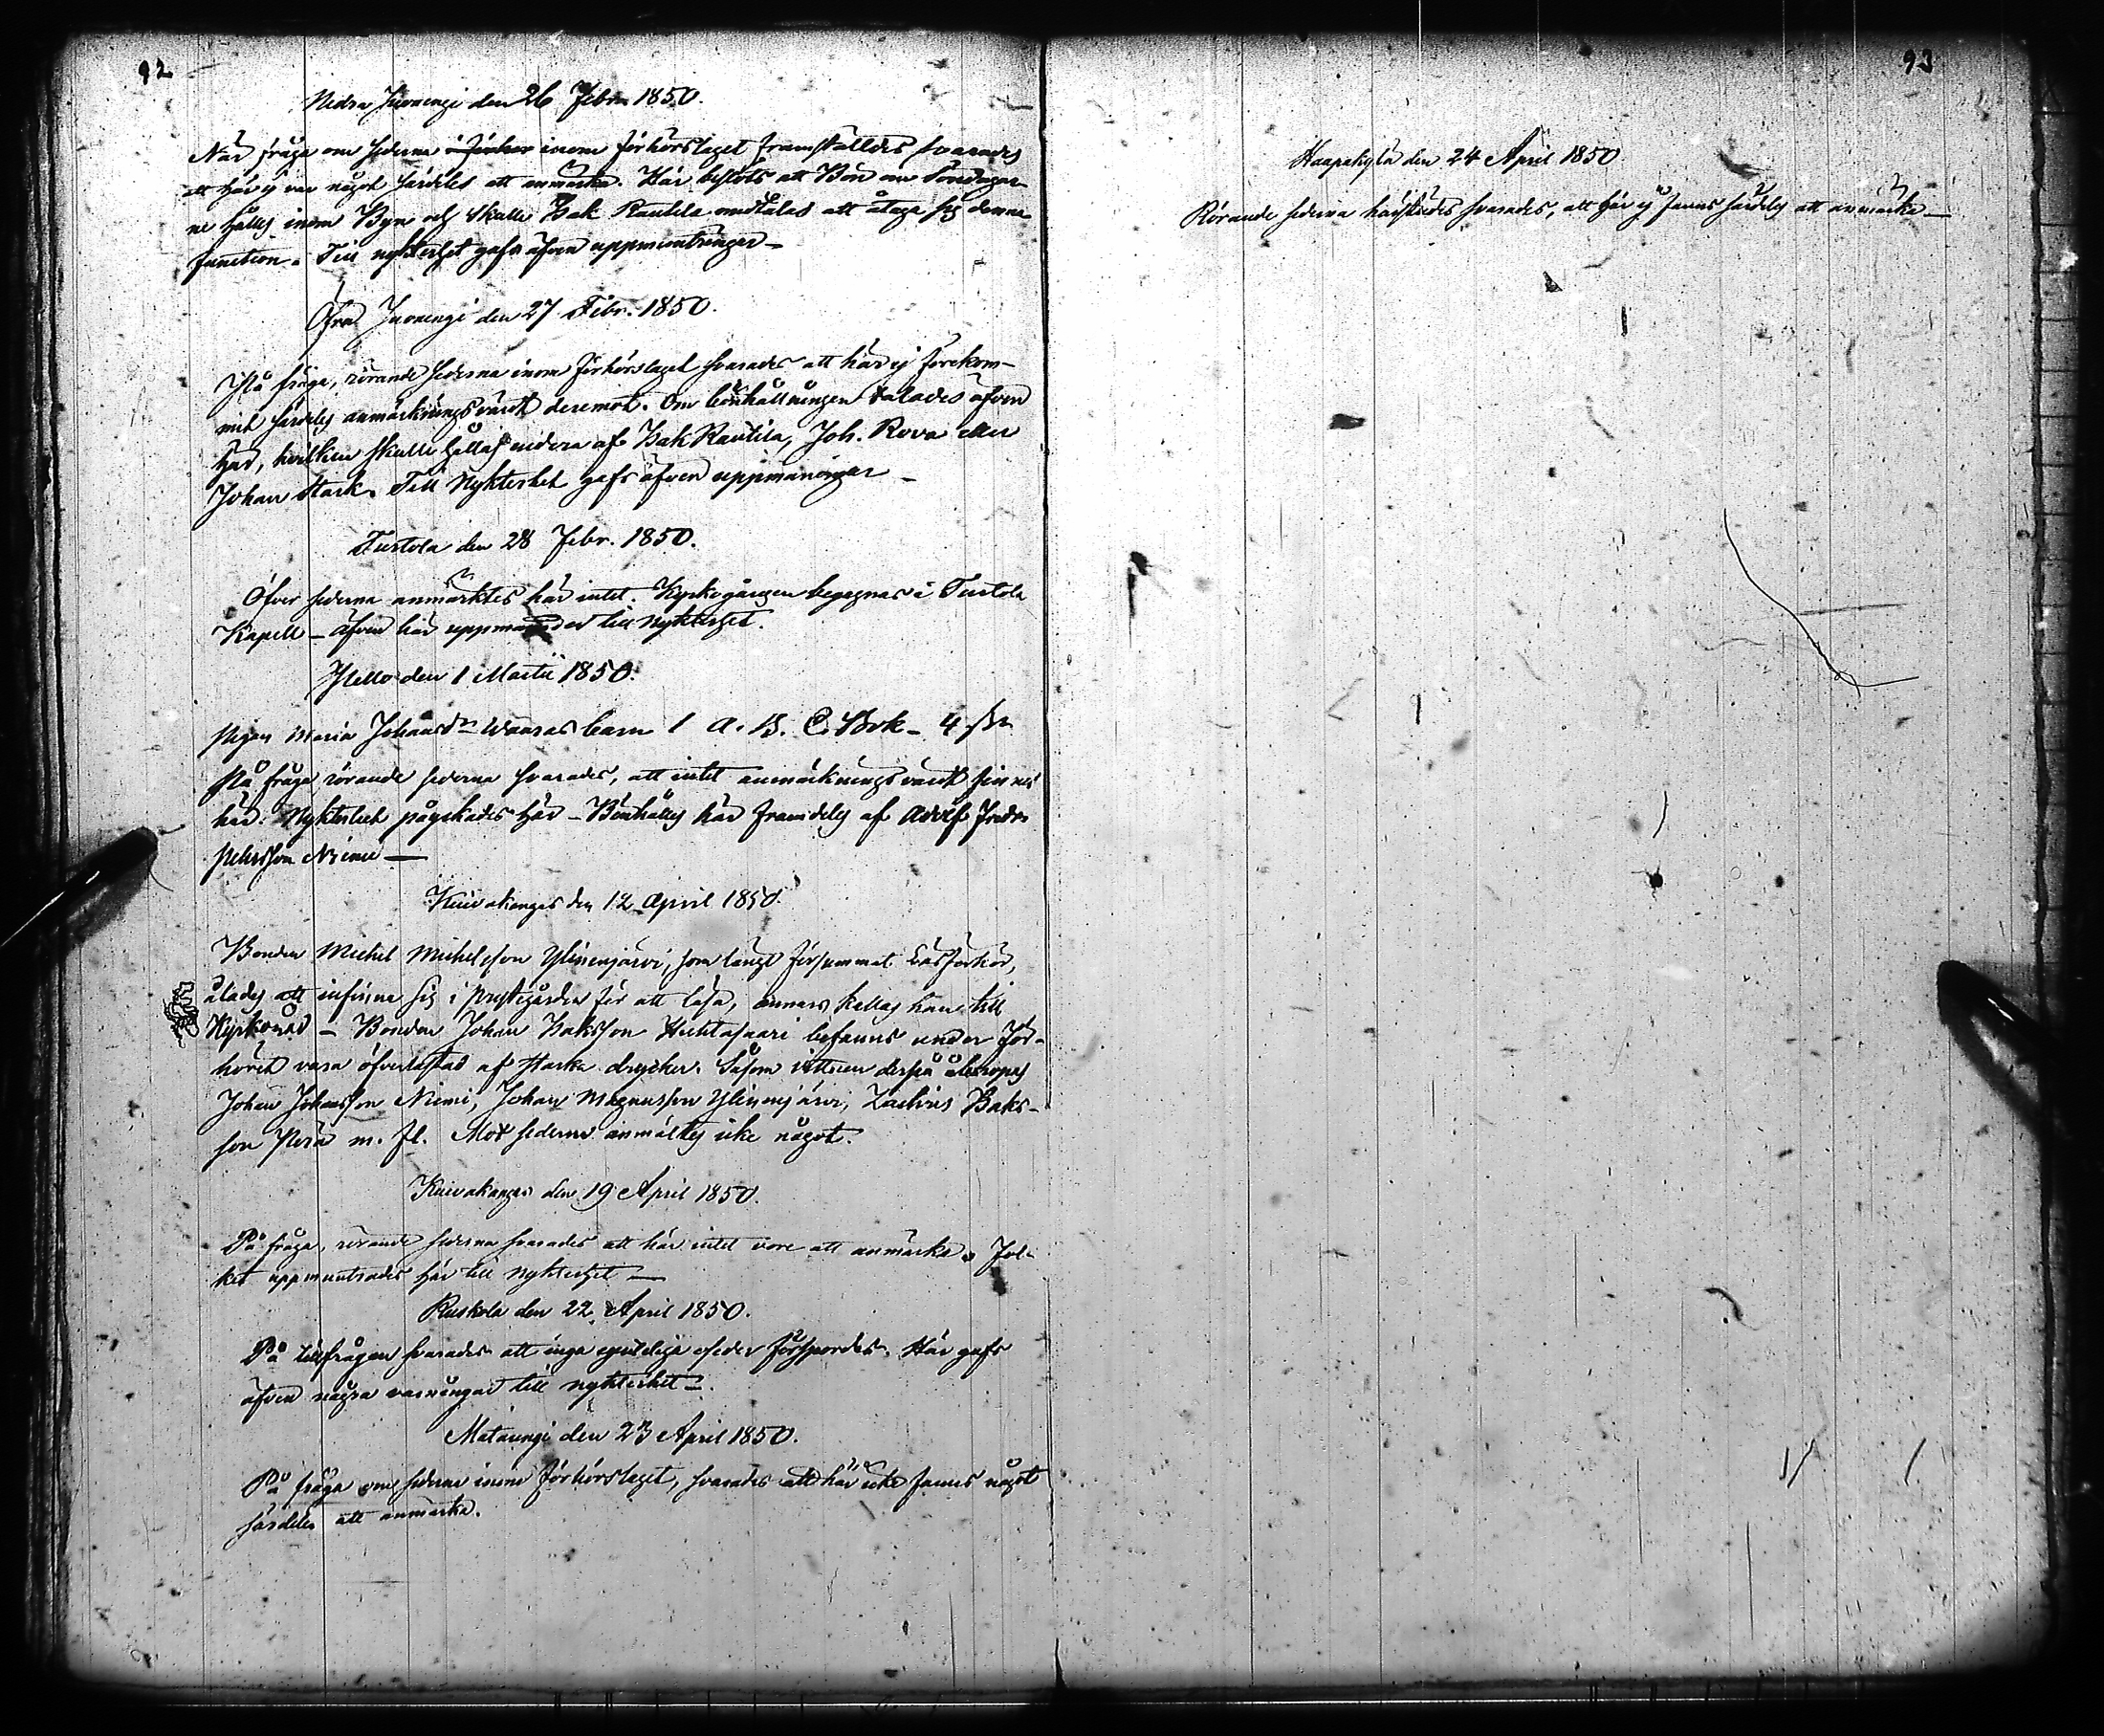 92
Nedra Juoxengi den 26 Febr. 1850.
När fråga om sederna inom förhörslaget framställdes svarades
att här ej var något särdeles att anmärka. Här beslöts att Bön om Söndagar-
ne hålles inom Byn och skulle Isak Rautila omtalas att åtaga sig denna
function. Till nykterhet gafs äfven uppmuntringar —
Öfra Juoxengi den 27 Febr. 1850.
På fråga, rörande sederna inom förhörslaget svarades att här ej förekom-
mit särdeles anmärkningsvärdt deremot. Om bönhållningen talades äfven
här, hvilken skulle hållas af Isak Rautila, Joh. Rova eller
Johan Stark. Till Nykterhet gafs äfven uppmaningar —
Turtola den 28 Febr. 1850.
Öfver sederna anmärktes här intet. Kyrkogången begagnas i Turtola
Kapell — äfven här till nykterhet.
Pello den 1 Martii 1850.
Pigan Maria Johansdr Waaras barn 1 A. B. C. Bok — 4 sk
På fråga rörande sederna svarades, att intet anmärkningsvärdt finnes
här. Nykterhet påyrkades här — Bönhålles här framdeles af Adolf Fredr.
Pehrsson Niemi —
Kuivakangas den 12 April 1850.
Bonden Michel Michelsson Ylinenjärvi, som längt försummat Läsförhör,
ålades att infinna sig i Prestgården för att läsa, annars kallas han till
Kyrkoråd — Bonden Johan Isaksson Huhtasaari befanns under För-
höret vara öfverlastad af starka drycker. Såsom vittnen derpå åberopas
Johan Johansson Niemi, Johan Magnusson Ylinenjärvi, Zachris Isaks-
son Perä m. fl. Mot sederna anmältes icke något.
Kuivakangas den 19 April 1850.
På fråga, rörande sederna svarades att här intet vore att anmärka. Fol-
ket uppmuntrades här till nykterhet —
Ruskola den 22 April 1850.
På tillfrågan svarades att inga egentliga oseder försporđes. Här gafs
äfven några varningar till nykterhet —.
Matarengi den 23 April 1850.
På fråga om sederna inom förhörslaget, svarades att här icke fanns något
särdeles att anmärka.
93
Haapakylä den 24 April 1850
Rörande sederna härstädes svarades, att här ej fanns särdeles att anmärka —